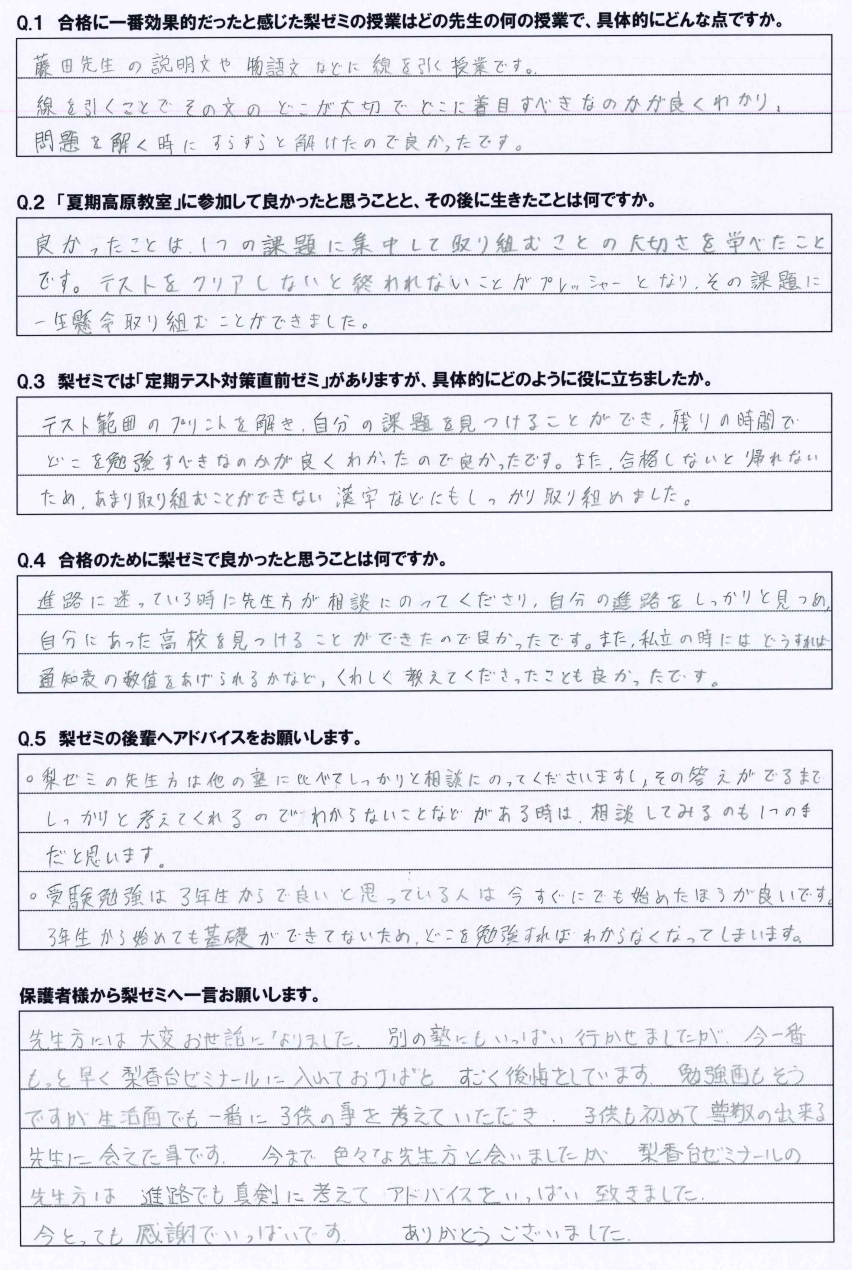 Q.1 合格に一番効果的だったと感じた梨ゼミの授業はどの先生の何の授業で、具体的にどんな点ですか。
藤田先生の説明文や物語文などに線を引く授業です。
線を引くことでその文のどこが大切でどこに着目すべきなのかが良くわかり、
問題を解く時にすらすらと解けたので良かったです。
Q.2 「夏期高原教室」に参加して良かったと思うことと、その後に生きたことは何ですか。
良かったことは、1つの課題に集中して取り組むことの大切さを学べたこと
です。テストをクリアしないと終われないことがプレッシャーとなり、その課題に
一生懸命取り組むことができました。
Q.3 梨ゼミでは「定期テスト対策直前ゼミ」がありますが、具体的にどのように役に立ちましたか。
テスト範囲のプリントを解き、自分の課題を見つけることができ、残りの時間で
どこを勉強すべきなのかが良くわかったので良かったです。また、合格しないと帰れない
ため、あまり取り組むことができない漢字などにもしっかり取り組めました。
Q.4 合格のために梨ゼミで良かったと思うことは何ですか。
進路に迷っている時に先生方が相談にのってくださり、自分の進路をしっかりと見つめ、
自分にあった高校を見つけることができたので良かったです。また、私立の時にはどうすれば
通知表の数値をあげられるかなど、くわしく教えてくださったことも良かったです。
Q.5 梨ゼミの後輩へアドバイスをお願いします。
○梨ゼミの先生方は他の塾に比べてしっかりと相談にのってくださいますし、その答えがでるまで
しっかりと考えてくれるのでわからないことなどがある時は、相談してみるのも1つの手
だと思います。
○受験勉強は3年生からで良いと思っている人は今すぐにでも始めたほうが良いです。
3年生から始めても基礎ができてないため、どこを勉強すればわからなくなってしまいます。
保護者様から梨ゼミへ一言お願いします。
先生方には大変お世話になりました。別の塾にもいっぱい行かせましたが、今一番
もっと早く梨香台ゼミナールに入れておけばと すごく後悔をしています 勉強面もそう
ですが生活面でも一番に子供の事を考えていただき、子供も初めて尊敬の出来る
先生に会えた事です。今まで色々な先生方と会いましたが 梨香台ゼミナールの
先生方は 進路でも真剣に考えて アドバイスをいっぱい 致きました。
今とっても感謝でいっぱいです。ありがとうございました。